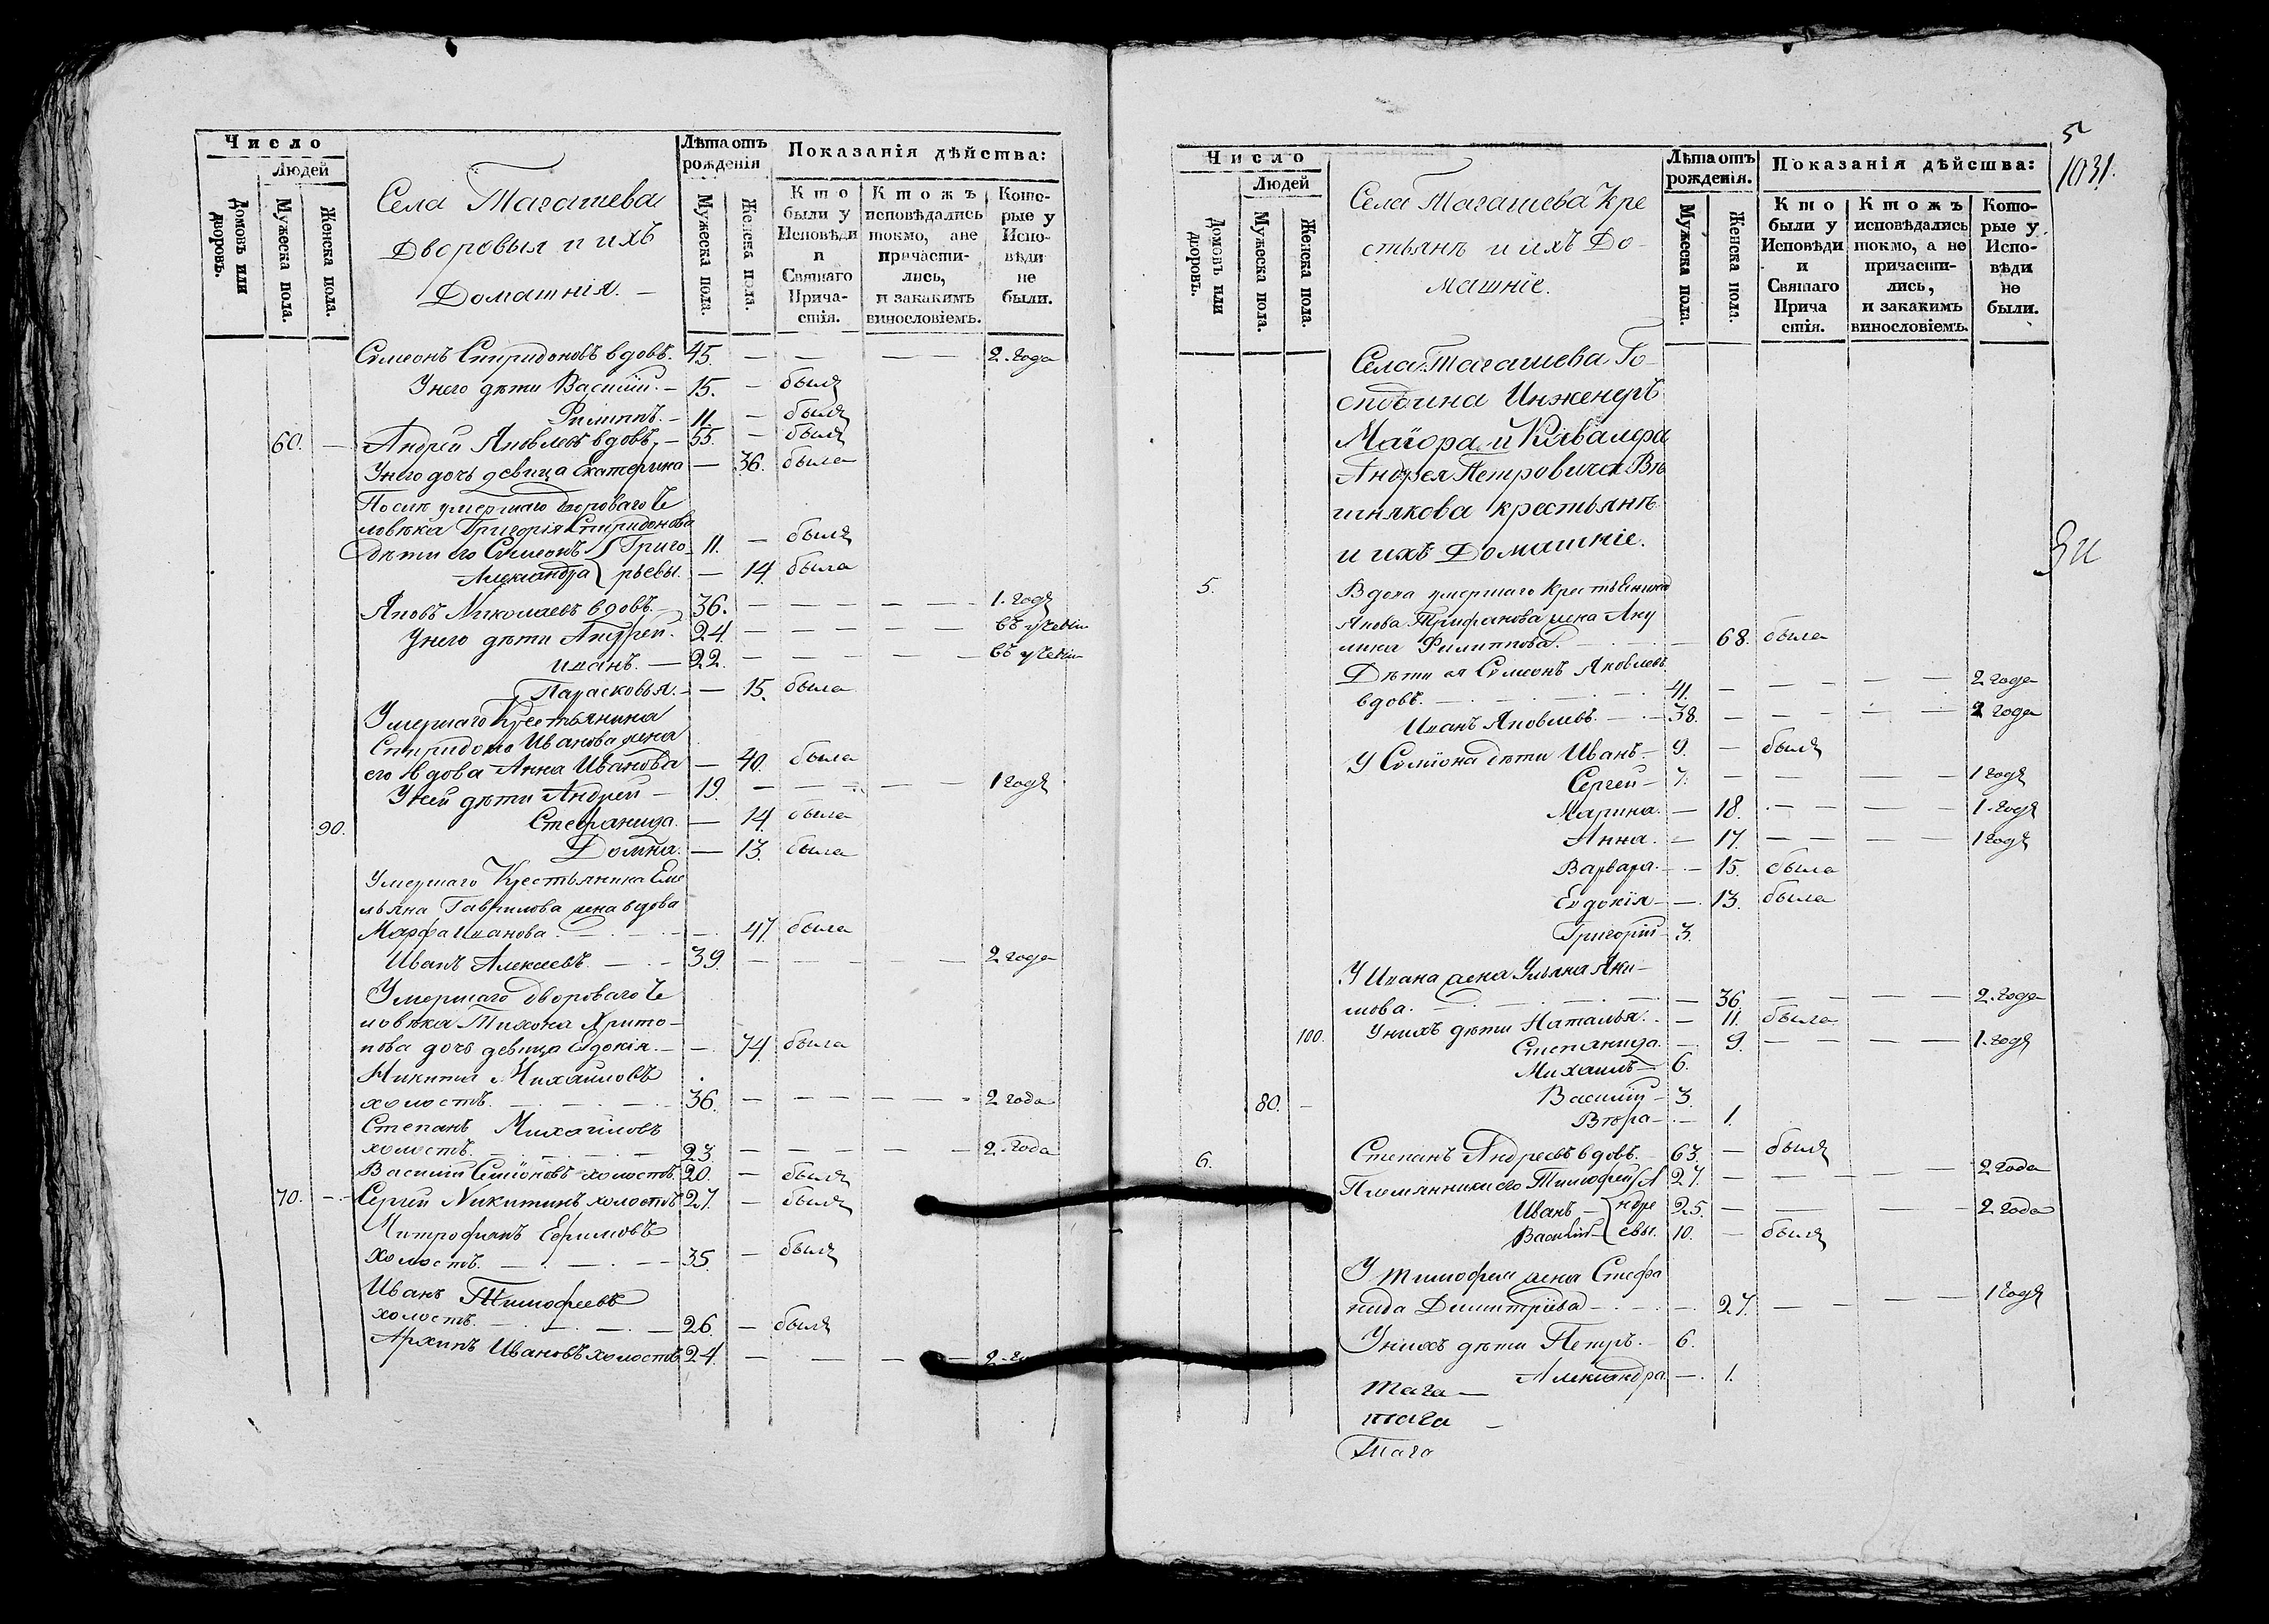 Число
Людей
Домовъ или дворовъ.
Мужеска пола.
Женска пола.
Села Тагашева
Дворовыя и ихъ
Домашнія. —
Лѣта отъ рожденія
Мужеска пола.
Женска пола.
Показанія дѣйства:
Кто были у Исповѣди и Святаго Прича-стія.
Ктожъ исповѣдались токмо, а не причасти-лись, и закакимъ винословіемъ.
Кото-рые у Испо-вѣди не были.
Симеонъ Спиридоновъ вдовъ. 45. — — — — 2. года
Унего дѣти Василій. — 15. — былъ
Филиппъ. — 11. — былъ
60. — Андрей Яковлевъ вдовъ, — 55. — былъ
Унего дочь девица Екатерина — 36. была
После умершаго двороваго Че
ловѣка Григорія Спиридонова
дѣти его Симеонъ { Григо- 11. — былъ
Александра { рьевы. — 14 была
Яковъ Николаевъ вдовъ. — 36. — — — — 1. годъ
Унего дѣти Андрей. 24. — — — —
Иванъ. — 22. — — — —
Парасковья. — — 15. была
Умершаго Крестьянина
Спиридона Иванова жена
его вдова Анна Иванова — 40. была
Уней дѣти Андрей — 19. — — — — 1 годъ
90. Стефанида. — 14. была
Домна. — 13. была
Умершаго Крестьянина Еме
льяна Гаврилова жена вдова
Марфа Иванова. — 47. была
Иванъ Алексеевъ. — 39. — — — — 2 года
Умершаго двороваго Че
ловѣка Тихона Харито-
нова дочь девица Евдокія. — — 74 была
Никита Михайловъ
холостъ. — 36. — — — — 2 года
Степанъ Михайловъ
холостъ. — 23. — — — — 2. года
Василій Симіоновъ холостъ. 20. — былъ
70. — Сергей Никитинъ холостъ 27. — былъ
Митрофанъ Ефимовъ
холостъ. — 35. — былъ
Иванъ Тимофеевъ
холостъ. — 26. — былъ
Архипъ Ивановъ холостъ. 24. — — — 2. го
5
1031.
Число
Людей
Домовъ или дворовъ.
Мужеска пола.
Женска пола.
Села Тагашева Кре
стьянъ и ихъ До-
машніе.
Лѣта отъ рожденія.
Мужеска пола.
Женска пола.
Показанія дѣйства:
Кто были у Исповѣди и Святаго Прича стія.
Ктожъ исповѣдались токмо, а не причасти-лись, и закакимъ винословіемъ.
Кото-рые у Испо-вѣди не были.
Села Тагашева Го-
сподина Инженеръ
Маіора и Кавалера
Андрея Петровича Вѣ
шнякова крестьянъ
и ихъ Домашніе.
5. Вдова умершаго Крестьянина
Якова Трифонова жена Аку
лина Филиппова. — 68. была
Дѣти ея Симеонъ Яковлевъ
вдовъ. — 41. — — — — 2 года
Иванъ Яковлевъ. — 38. — — — — 2 года
У Симіона дѣти Иванъ — 9. — былъ
Сергей — 7. — — — — 1 годъ
Марина. — 18. — — — — 1. годъ
Анна. — 17. — — — — 1 годъ
Варвара. — 15. была
Евдокія — 13. была
Григорій — 3.
У Ивана жена Ульяна Аки-
мова. — 36 — — — — 2. года
100. Унихъ дѣти Наталья. — 11. была
Степанида. — 9. — — — — 1. годъ
Михаилъ — 6.
80. — Василій — 3.
Вѣра — 1.
6. Степанъ Андреевъ вдовъ. — 63. — былъ
Племянники его Тимофей { А 27. — — — — 2 года
Иванъ — { ндре 25. — — — — 2 года
Василій — { евы. 10. — былъ
У Тимофея жена Стефа
нида Димитріева — 27. — — — — 1 годъ
Унихъ дѣти Петръ. — 6.
Александра. — 1.
тага —
тага —
Тага